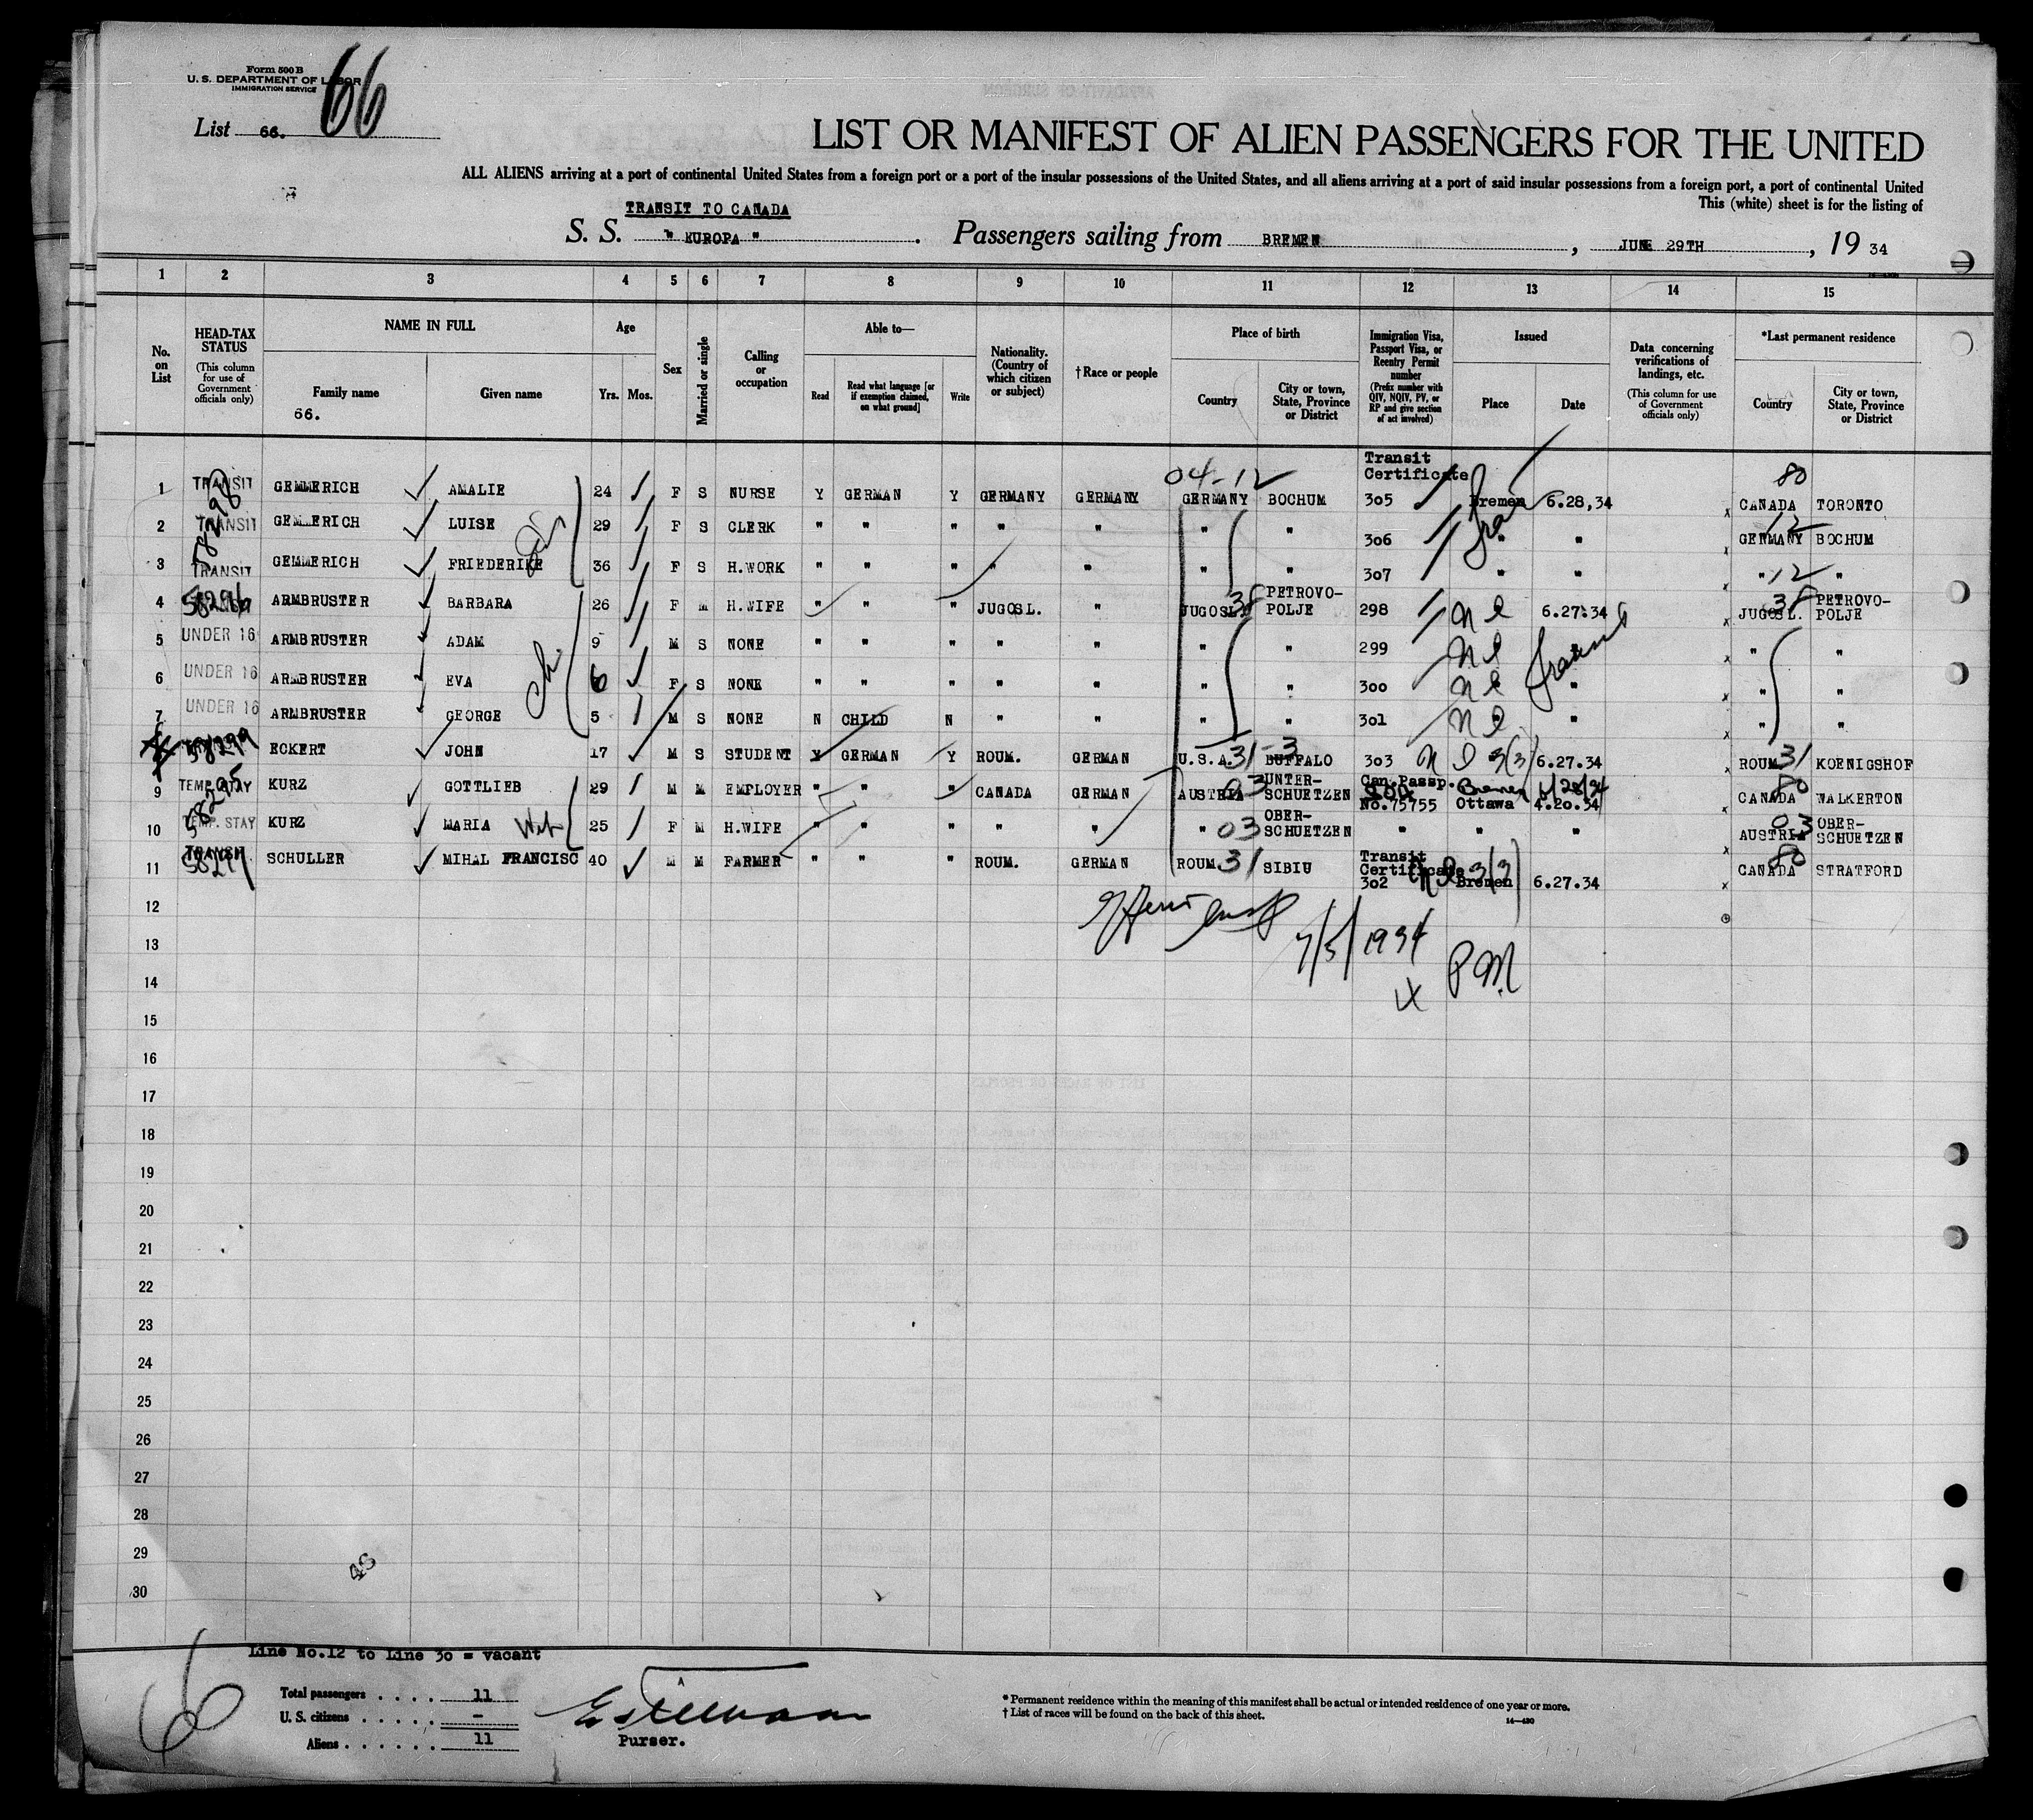 Form 500 B
U. S. DEPARTMENT OF LABOR
IMMIGRATION SERVICE
66
List 66.
LIST OR MANIFEST OF ALIEN PASSENGERS FOR THE UNITED
ALL ALIENS arriving at a port of continental United States from a foreign port or a port of the insular possessions of the United States, and all aliens arriving at a port of said insular possessions from a foreign port, a port of continental United
This (white) sheet is for the listing of
TRANSIT TO CANADA
S. S. " EUROPA ". Passengers sailing from BREMEN, JUNE 29TH, 19 34
1 2 3 4 5 6 7 8 9 10 11 12 13 14 15
No. on List
HEAD-TAX STATUS (This column for use of Government officials only)
NAME IN FULL
Family name
66.
Given name
Age
Yrs. Mos.
Sex
Married or single
Calling or occupation
Able to—
Read
Read what language [or if exemption claimed, on what ground]
Write
Nationality. (Country of which citizen or subject)
† Race or people
Place of birth
Country
City or town, State, Province or District
Immigration Visa, Passport Visa, or Reentry Permit number (Prefix number with QIV, NQIV, PV, or RP and give section of act involved)
Issued
Place
Date
Data concerning verifications of landings, etc. (This column for use of Government officials only)
*Last permanent residence
Country
City or town, State, Province or District
Transit Certificate
04-12
80
1 TRANSIT GEMMERICH AMALIE 24 F S NURSE Y GERMAN Y GERMANY GERMANY GERMANY BOCHUM 305 Bremen 6.28.34 x CANADA TORONTO
58298
2 TRANSIT GEMMERICH LUISE 29 F S CLERK " " " " " " " 306 " " x GERMANY 12 BOCHUM
3 TRANSIT GEMMERICH FRIEDERIKE 36 F S H.WORK " " " " " " " 307 " " x " 12 "
4 58296 ARMBRUSTER BARBARA 26 F M H.WIFE " " " JUGOSL. " JUGOSL. 38 PETROVO-POLJE 298 6.27.34 x JUGOSL. 38 PETROVO-POLJE
5 UNDER 16 ARMBRUSTER ADAM 9 M S NONE " " " " " " " 299 x " "
6 UNDER 16 ARMBRUSTER EVA 6 F S NONE " " " " " " " 300 " x " "
7 UNDER 16 ARMBRUSTER GEORGE 5 M S NONE N CHILD N " " " " 301 " x " "
58299 ECKERT JOHN 17 M S STUDENT Y GERMAN Y ROUM. GERMAN U.S.A. 31-3 BUFFALO 303 3(3) 6.27.34 x ROUM. 31 KOENIGSHOF
9 TEMP. STAY KURZ GOTTLIEB 29 M M EMPLOYER " " " CANADA GERMAN AUSTRIA 03 UNTER-SCHUETZEN Can.Passp. No.75755 Bremen 6/28/34 Ottawa 4.20.34 x CANADA 80 WALKERTON
58295
10 TEMP. STAY KURZ MARIA 25 F M H.WIFE " " " " " " 03 OBER-SCHUETZEN " " " x AUSTRIA 03 OBER-SCHUETZEN
11 TRANSIT 58297 SCHULLER MIHAL FRANCISC 40 M M FARMER " " " ROUM. GERMAN ROUM. 31 SIBIU Transit Certificate 302 3(3) Bremen 6.27.34 x CANADA 80 STRATFORD
12
13
7/5/1934
14
P.M.
15
16
17
18
19
20
21
22
23
24
25
26
27
28
29
30
48
Line No.12 to Line 30 = vacant
Total passengers . . . . 11
U. S. citizens . . . . . -
Aliens . . . . . . 11
Purser.
* Permanent residence within the meaning of this manifest shall be actual or intended residence of one year or more.
† List of races will be found on the back of this sheet.
14—430